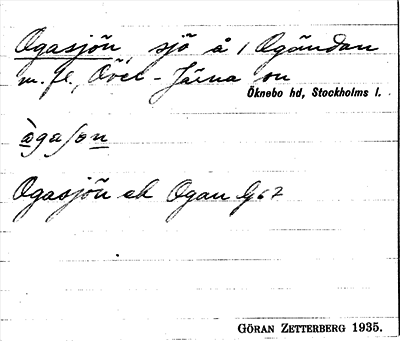 Ogasjön, sjö å 1 Ogändan
m. fl., Över-Järna sn
Öknebo hd, Stockholms l.
Ogasjön el. Ogan
GÖRAN ZETTERBERG 1935.